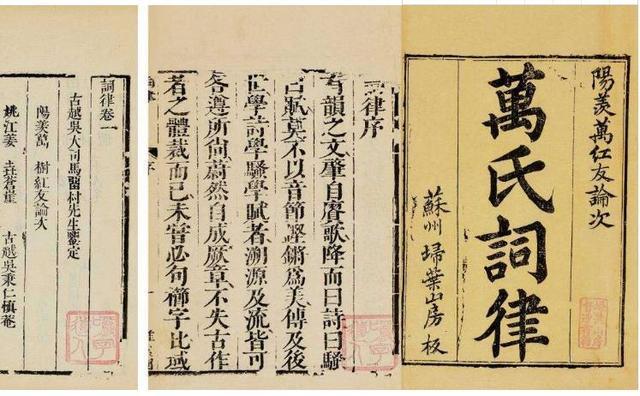 陽羨萬紅友論次
萬氏詞律
蘇州埽葉山房板
詞律序
有韻之文肇自賡歌降而曰詩曰騷
曰賦莫不以音節鏗鏘爲美傳及後
世學詩學騷學賦者溯源及流皆可
各遵所尙蔚然自成厥章不失古作
者之體裁而已未嘗必句櫛字比域
詞律卷一
古越吳大司馬畱村先生鑒定
陽羨萬 樹紅友論次
姚江姜 垚蒼崖 古越吳秉仁慎菴